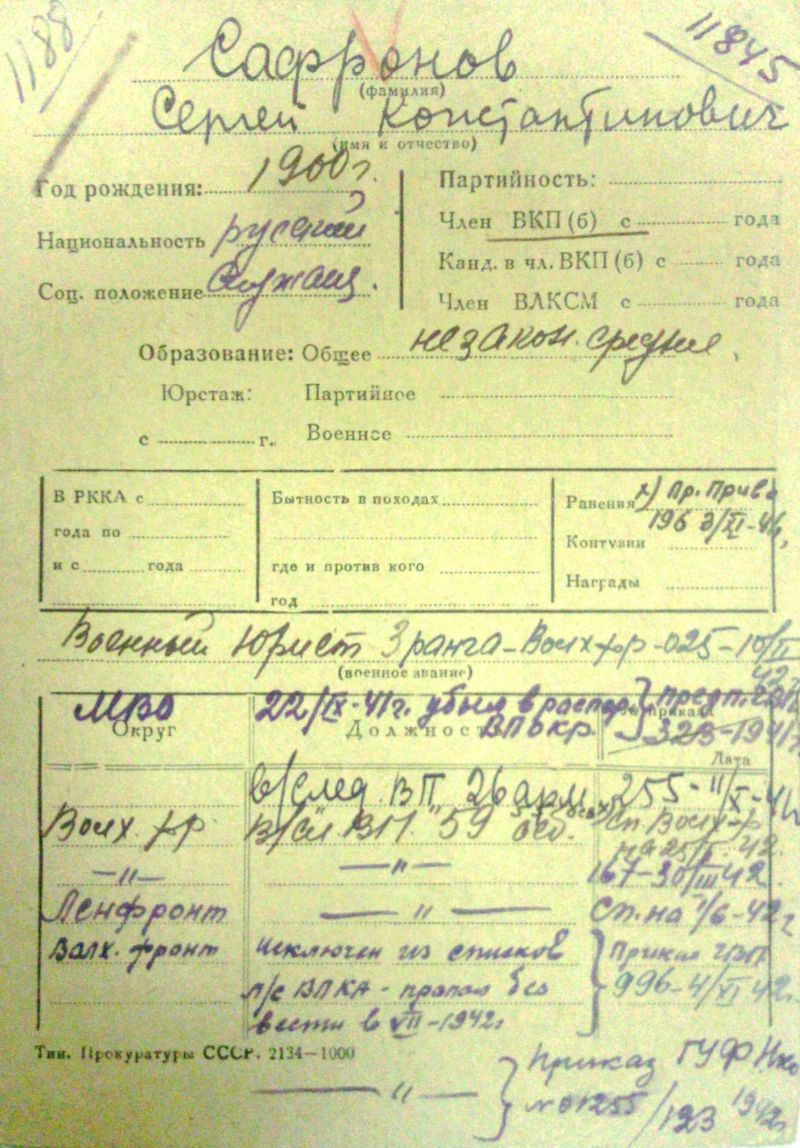 1188
11845
Сафронов
(фамилия)
Сергей Константинович
(имя и отчество)
Год рождения: 1900 г.
Национальность русский
Соц. положение служащ.
Партийность:
Член ВКП(б) с года
Канд. в чл. ВКП(б) с года
Член ВЛКСМ с года
Образование: Общее незакон. среднее
Юрстаж: Партийное
с г. Военное
В РККА с
года по
и с года
Бытность в походах
где и против кого
год
Ранения х) Пр. Прив.
196 3/XI-41,
Контузии
Награды
Военный Юрист 3 ранга - Волх фр - 025 - 10/II
42 г
(военное звание)
МВО 22/IX-41г. убыл в распор. предп. ГВП
Округ Должность ВПокр. № приказа 323-1941г
Дата
в/след ВП 26 арм 255-11/X-41
Волх. фр В/сл ВП "59 Сп. Волх-фр
на 25/II. 42.
—"— —"— 167-30/III 42.
Ленфронт —"— Сп. на 1/6-42 г
Валх. фронт исключен из списков Приказ ГВП
л/с ВПКА - пропал без 996-4/XI 42 г.
вести в VII-1942 г
Тип. Прокуратуры СССР. 2134—1000
—"— Приказ ГУФ НКО
№ 01255/123 1942 г